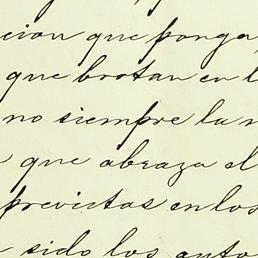 cion que ponga
que brotan en l
no siempre la n
que abraza el
previstas en los
sido los auto